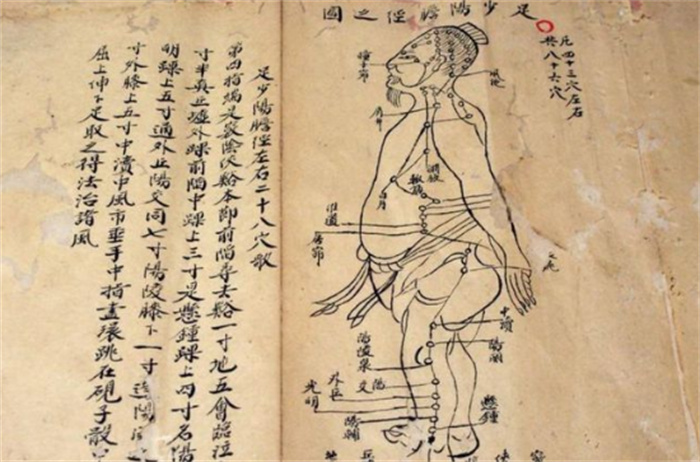 足少陽膽徑之圖
凡四十三穴左右
共八十六穴
風池
肩井
淵液
輒筋
日月
維道
居髎
中瀆
陽關
陽陵泉
陽交
外丘
光明
陽輔
懸鐘
足少陽膽徑左右二十八穴歌
第四指端是竅陰俠谿本節前陷尋去谿一寸地五會臨泣
寸半真丘墟外踝前陷中踝上三寸是懸鐘踝上四寸名陽
明踝上五寸通外丘陽交同七寸陽陵膝下一寸陽
寸外膝上五寸中瀆中風市垂手中指盡環跳在硯子骰
屈上伸下足取之得法治諸風